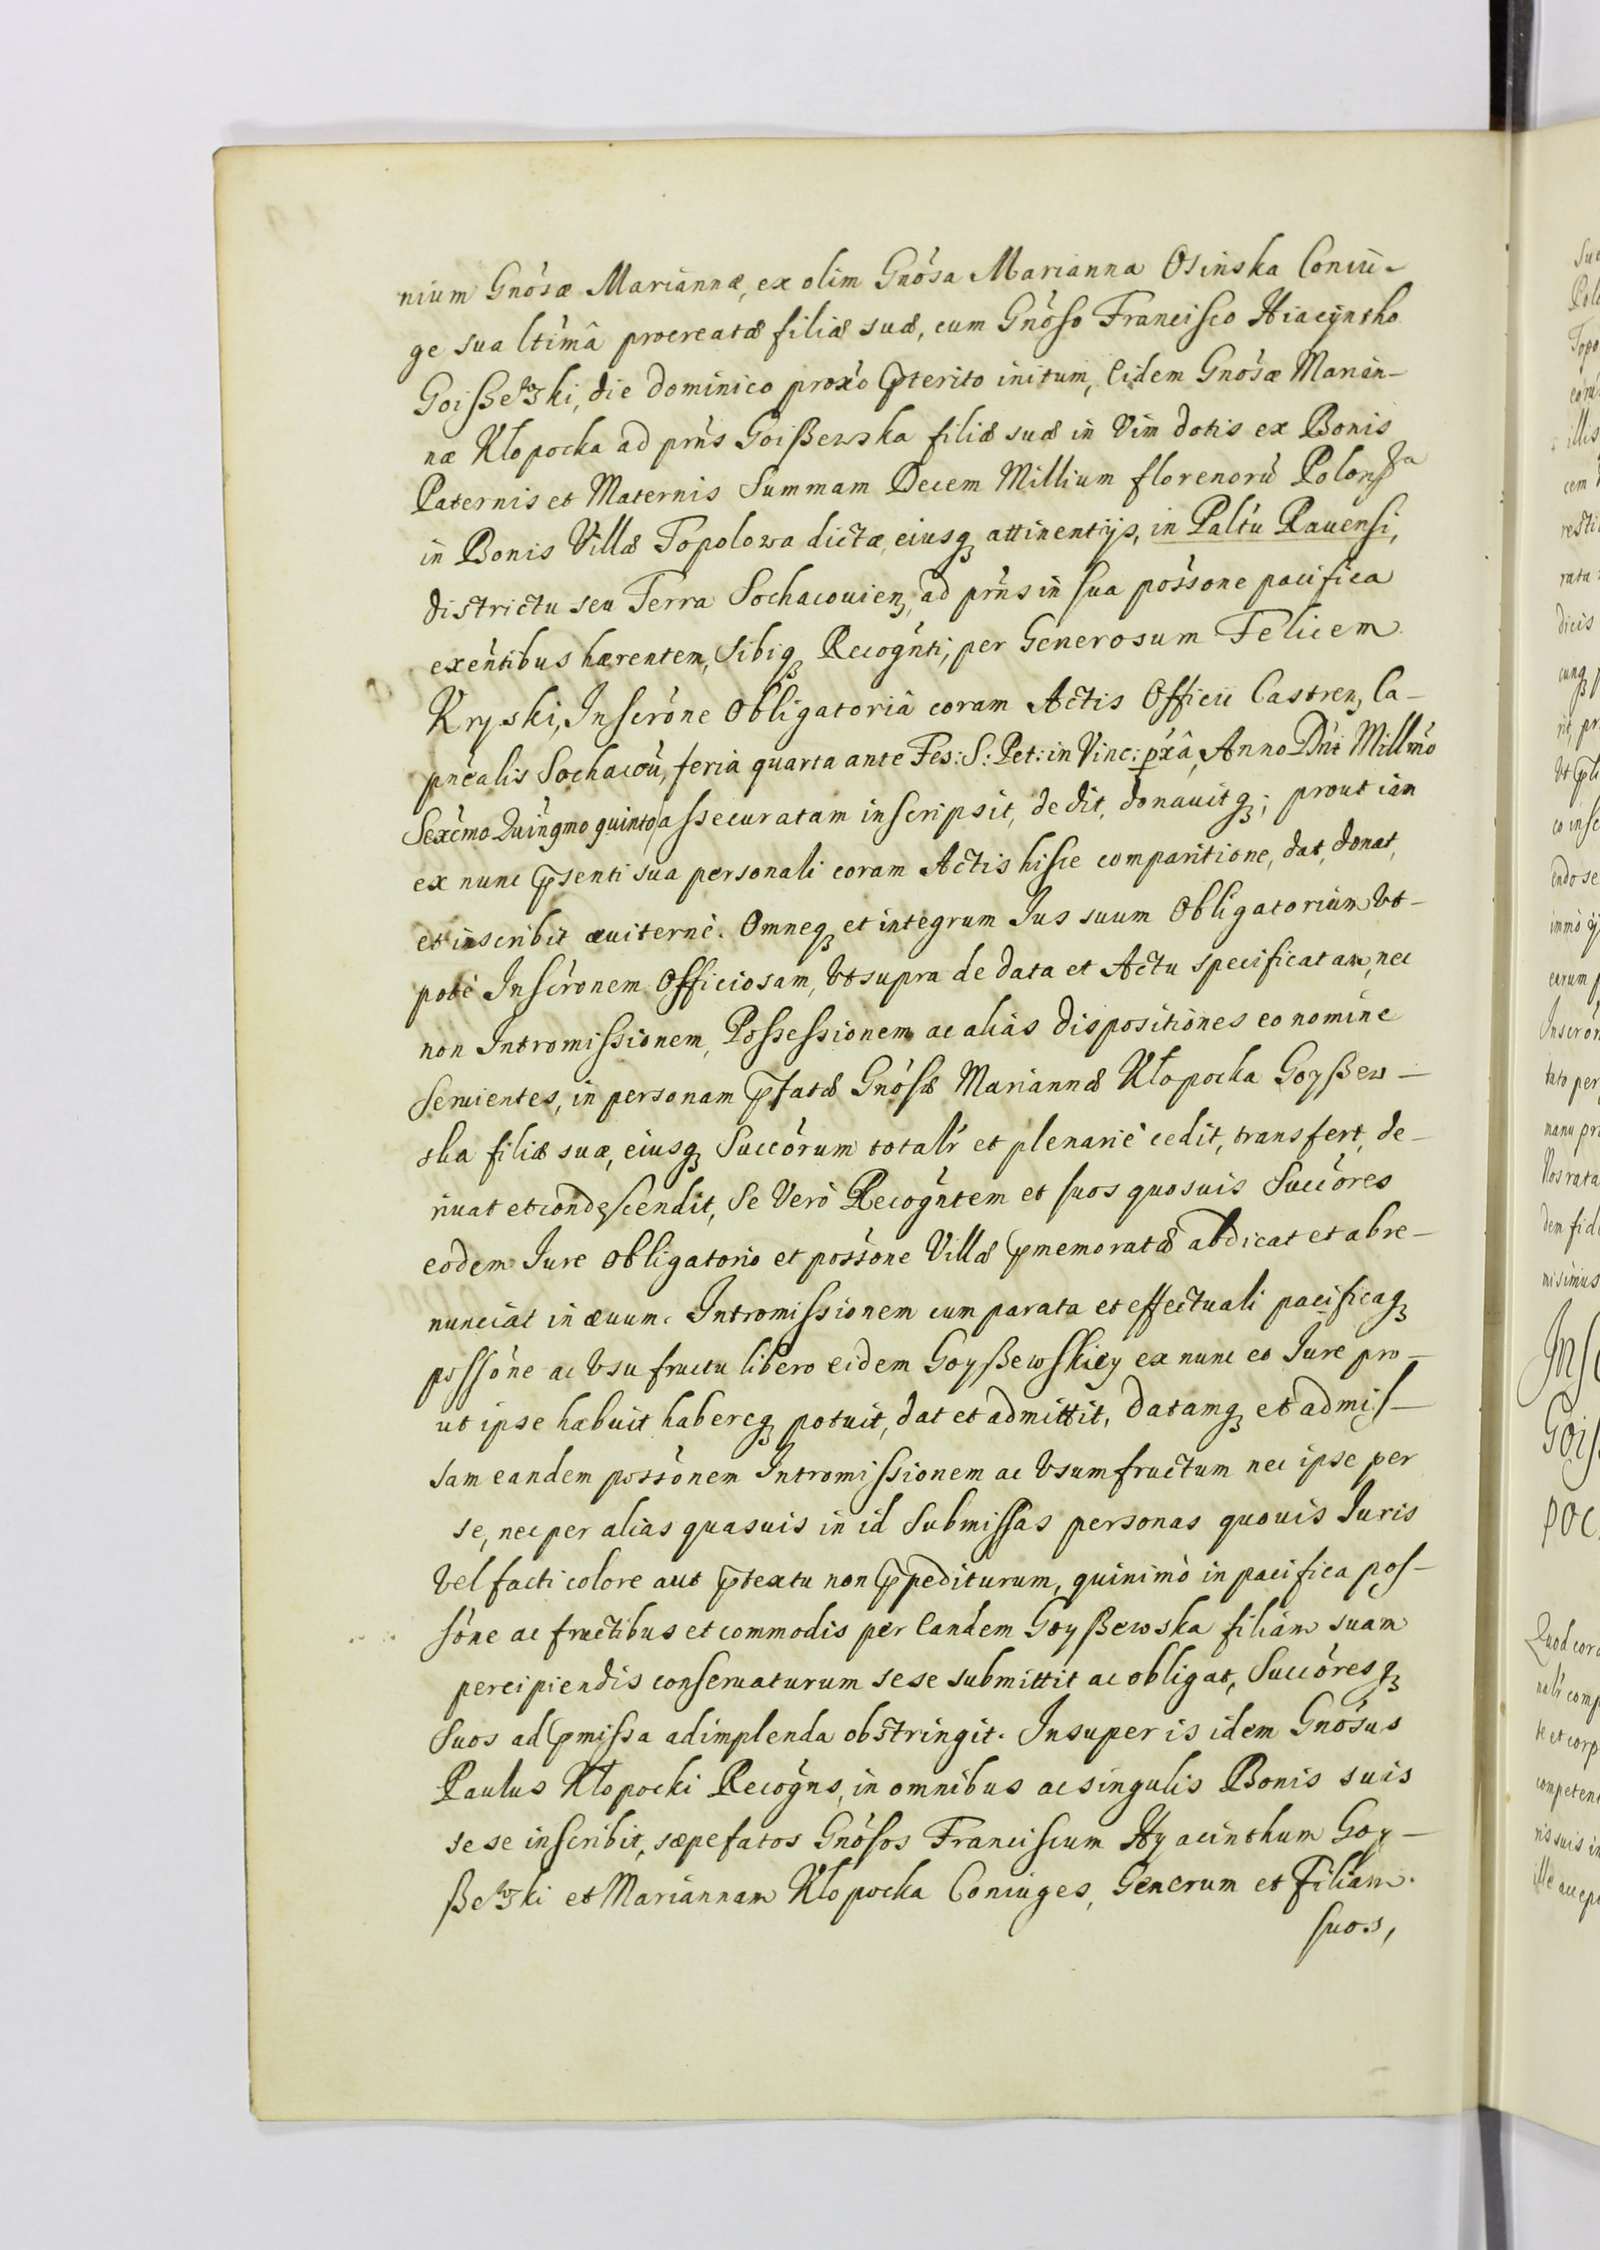 nium Gnósæ Mariannæ, ex olim Gnósa Marianna Osinska Coniu-
ge sua ltimâ procreatæ filiæ suæ, cum Gnóso Francisco Hiacyntho
Goißewski, die Dominico proxo p̃terito initum, Eidem Gnósæ Marian-
næ Kłopocka ad prńs Goißewska filiæ suæ in Vim dotis ex Bonis
Paternis et Maternis Summam Decem Millium florenorũ Polon̨
in Bonis Villæ Topolowa dictæ, eiusq̨ attinentijs, in Paltu Rauensi,
districtu seu Terra Sochacouien̨, ad prńs in sua possone pacifica
exentibus hærentem, Sibiq̨ Recognti, per Generosum Felicem
Kryski, Inscrone Obligatoriâ coram Actis Officii Castren̨, Ca-
pnealis Sochacou, feria quarta ante Fes: S: Pet: in Vinc: pxâ, Anno Dni Millmo
Sexcmo Quingmo quinto, assecuratam inscripsit, dedit, donauitq̨; prout iam
ex nunc p̃senti sua personali coram Actis hisce comparitione, dat, donat,
et inscribit æuiternè. Omneq̨ et integrum Jus suum Obligatorium Vt-
potè Inscronem Officiosam, Vt supra de data et Actu specificatam, nec
non Intromissionem, Possessionem ac alias dispositiones eo nomine
seruientes, in personam p̃fatæ Gnósæ Mariannæ Kłopocka Goyßew-
ska filiæ suæ, eiusq̨ Succorum totalr et plenariè cedit, transfert, de-
riuat et condescendit, Se Verò Recogntem et suos quosuis Succores
eodem Jure Obligatorio et possone Villæ p̃memoratæ abdicat et abre-
nunciat in æuum. Intromissionem cum parata et effectuali pacificaq̨
possone ac Vsu fructu libero eidem Goyßewskiey ex nunc eo Jure pro-
ut ipse habuit habereq̨ potuit, dat et admittit, datamq̨ et admis-
sam eandem possonem Intromissionem ac Vsumfructum nec ipse per
se, nec per alias quasuis in id submissas personas quouis Juris
Vel facti colore aut p̃textu non p̃pediturum, quinimò in pacifica pos-
sone ac fructibus et commodis per Eandem Goyßewska filiam suam
percipiendis conseruaturum sese submittit ac obligat, Succoresq̨
Suos ad p̃missa adimplenda obstringit. Insuper is idem Gnósus
Paulus Kłopocki Recogns, in omnibus ac singulis Bonis suis
sese inscribit, sæpefatos Gnósos Franciscum Hyacinthum Goy-
ßewski et Mariannam Kłopocka Coniuges, Generum et Filiam
suos,